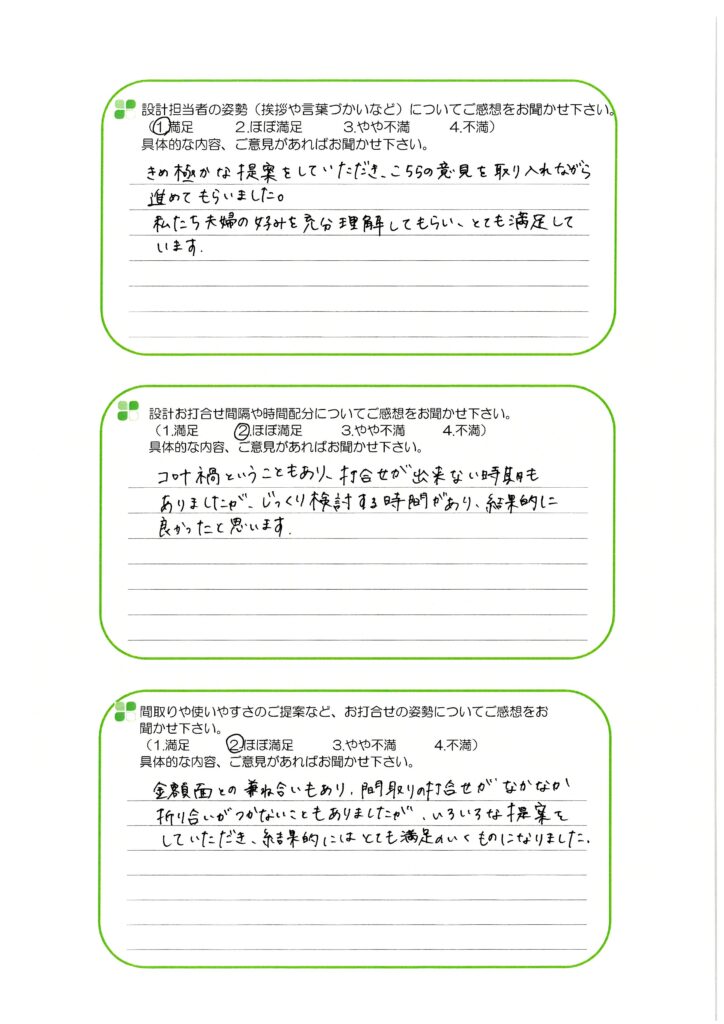 設計担当者の姿勢（挨拶や言葉づかいなど）についてご感想をお聞かせ下さい。
（1.満足　2.ほぼ満足　3.やや不満　4.不満）
具体的な内容、ご意見があればお聞かせ下さい。
きめ極かな提案をしていただき、こちらの意見を取り入れながら
進めてもらいました。
私たち夫婦の好みを充分理解してもらい、とても満足して
います.
設計お打合せ間隔や時間配分についてご感想をお聞かせ下さい。
（1.満足　2.ほぼ満足　3.やや不満　4.不満）
具体的な内容、ご意見があればお聞かせ下さい。
コロナ禍ということもあり、打合せが出来ない時期も
ありましたが、じっくり検討する時間があり、結果的に
良かったと思います.
間取りや使いやすさのご提案など、お打合せの姿勢についてご感想をお
聞かせ下さい。
（1.満足　2.ほぼ満足　3.やや不満　4.不満）
具体的な内容、ご意見があればお聞かせ下さい。
金額面との兼ね合いもあり、間取りの打合せがなかなか
折り合いがつかないこともありましたが、いろいろな提案を
していただき、結果的にはとても満足のいくものになりました.